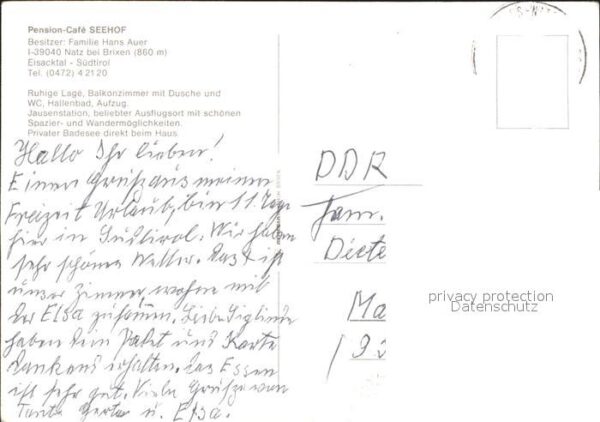 Pension-Café SEEHOF
Besitzer: Familie Hans Auer
I-39040 Natz bei Brixen (860 m)
Eisacktal - Südtirol
Tel. (0472) 42120
Ruhige Lage, Balkonzimmer mit Dusche und
WC, Hallenbad, Aufzug.
Jausenstation, beliebter Ausflugsort mit schönen
Spazier- und Wandermöglichkeiten.
Privater Badesee direkt beim Haus.
Hallo Ihr lieben!
Einen Gruß aus meinem
Freizeit Urlaub, bin 11 Tage
hier in Südtirol. Wir haben
sehr schönes Wetter. Das ist
unser Zimmer wohne mit
der Elsa zusammen. Liebe Siglinde
haben Dein Paket und Karte
dankend erhalten. Das Essen
ist sehr gut. Viele Grüße von
Tante Gerta u. Elsa.
DDR
Fam.
Diete
Ma
privacy protection
Datenschutz